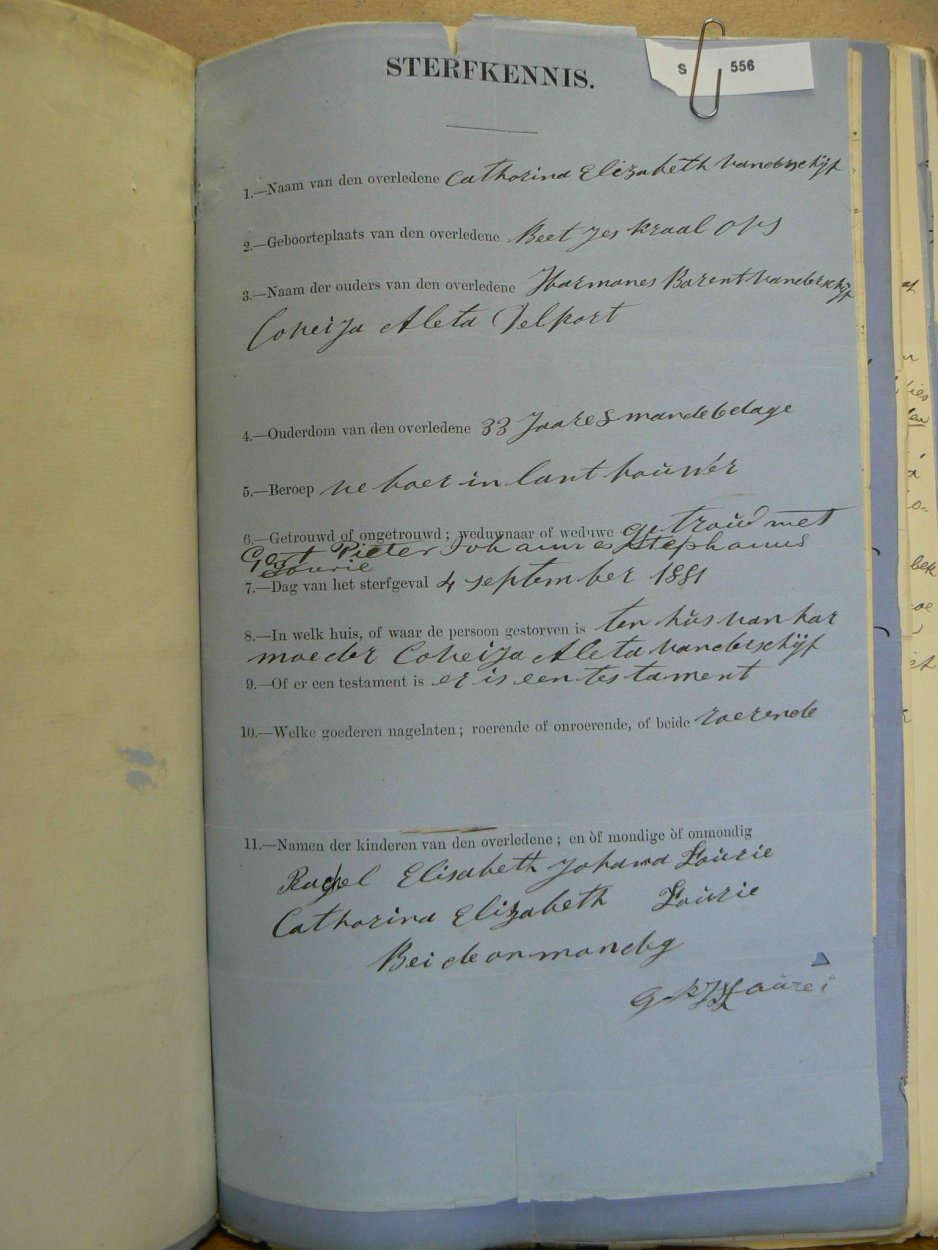 S 556
STERFKENNIS.
1.—Naam van den overledene Cathorina Elizabeth vanderschijf
2.—Geboorteplaats van den overledene Beetjes kraal OVS
3.—Naam der ouders van den overledene Harmanes Barent vanderschijf
Coheija Aleta Delport
4.—Ouderdom van den overledene 33 Jaare 8 mande 6 dage
5.—Beroep ve boer in lant bouwer
6.—Getrouwd of ongetrouwd; weduwnaar of weduwe getroud met
Gert Pieter Johannes Stephanus
Lourie
7.—Dag van het sterfgeval 4 september 1881
8.—In welk huis, of waar de persoon gestorven is ten hùs van har
moeder Coheija Aleta vanderschijf
9.—Of er een testament is er is een testament
10.—Welke goederen nagelaten; roerende of onroerende, of beide roerende
11.—Namen der kinderen van den overledene; en òf mondige òf onmondig
Rachel Elisabeth Johanna Loùrie
Cathorina Elizabeth Loùrie
Beide onmondig